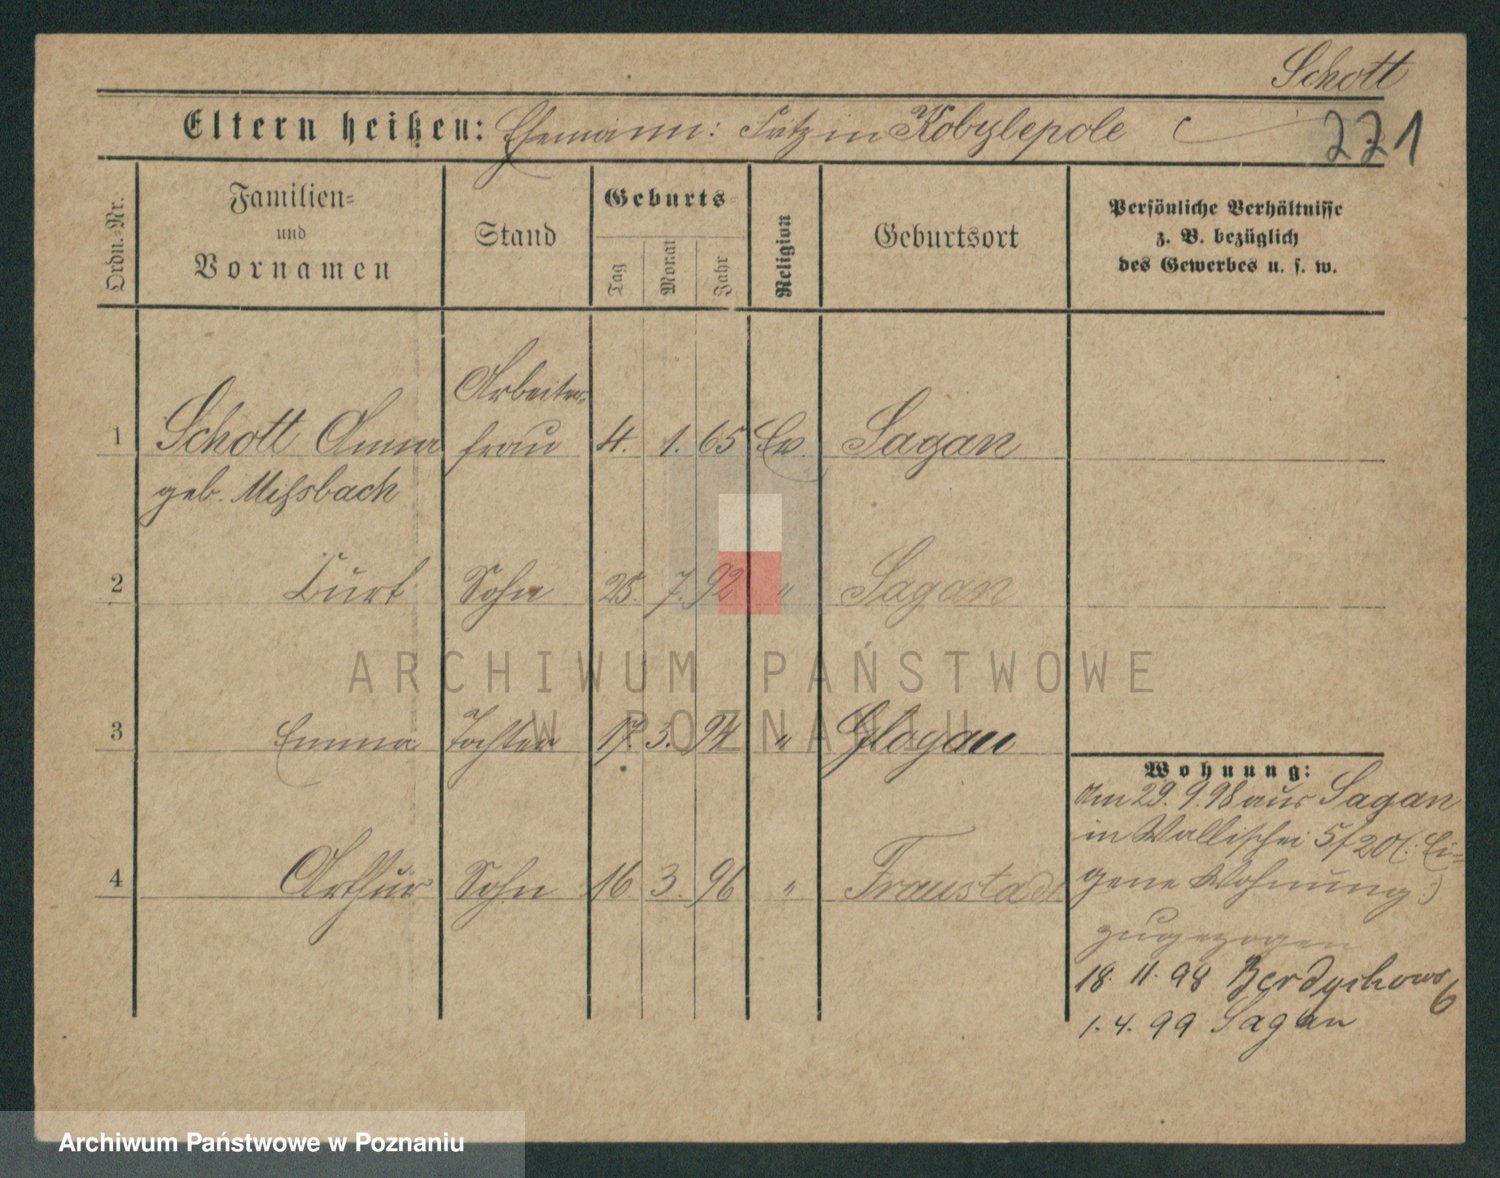 Schott
Eltern heißen: Ehemann: Fritz in Kobylepole
221
Ordn.-Nr.
Familien-
und
Vornamen
Stand
Geburts-
Tag
Monat
Jahr
Religion
Geburtsort
Persönliche Verhältnisse
z. B. bezüglich
des Gewerbes u. s. w.
1 Schott Anna Arbeiter-
frau 4. 1. 65 Ev. Sagan
geb. Mißbach
2 Curt Sohn 25. 7. 92 " Sagan
3 Emma Tochter 17. 3. 94 " Glogau
4 Arthur Sohn 16 3. 96 " Fraustadt
Wohnung:
Am 29. 9. 98 aus Sagan
in Wallischei 5/20 (: Ei-
gene Wohnung :)
zugezogen
18. 11. 98 Berdychowo 6
1. 4. 99 Sagan
ARCHIWUM PAŃSTWOWE
W POZNANIU
Archiwum Państwowe w Poznaniu